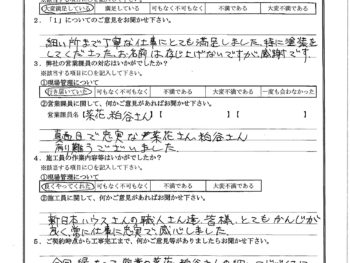 大変満足している 満足している 可もなく不可もなく 不満である 大変不満である
2．「1」についてのご意見をお聞かせ下さい。
細い所まで丁寧な仕事にとても満足しました。特に塗装を
してくださった、お名前は存じ上げないですが、感謝です。
3．弊社の営業課員の対応はいかがでしたか？
※該当する項目に○を記入して下さい。
①現場管理について
行き届いていた 可もなく不可もなく 不満である 大変不満である 一度も会わなかった
②営業課員に関して、何かご意見があればお聞かせ下さい。
営業課員名【 菜花、粕谷さん 】【 】
真面目で忠実な菜花さん、粕谷さん
有り難うございました。
4．施工員の作業内容等はいかがでしたか？
※該当する項目に○を記入して下さい。
①現場管理について
良くやってくれた 可もなく不可もなく 不満である 大変不満である
②施工員に関して、何かご意見があればお聞かせ下さい。
新日本ハウスさんの職人さん達、皆様、とてもかんじが
良く、常に仕事に忠実で、感心しました。
5．ご契約時点から工事完工まで、何かご意見等がありましたらお聞かせ下さい。